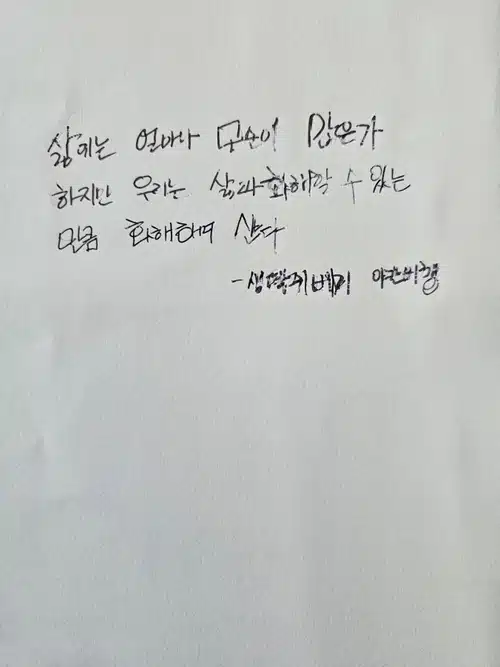 삶에는 얼마나 모순이 많은가
하지만 우리는 삶과 화해할 수 있는
만큼 화해하며 산다
-생떽쥐베리 야간비행